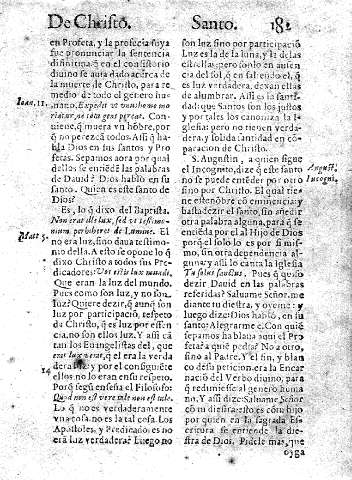 De Christo.
Santo. 182
en Profeta, y la profecia suya
fue pronunciar la sentencia
difinitiua q̃ en el consistorio
diuino se auia dado acerca de
la muerte de Christo, para re
medio de todo el genero hu-
Ioan. 11. mano. Expedit vt vnus homo mo
riatur, ne tota gens pereat. Con
uiene, q̃ muera vn hõbre, por
q̃ no perezcã todos. Assi q̃ ha
bla Dios en sus santos y Pro
fetas. Sepamos aora por qual
dellos se entiẽdẽ las palabras
de Dauid? Dios hablò en su
santo. Quien es este santo de
Dios?
Es, lo q̃ dixo del Baptista.
Non erat ille lux, sed vt testimo-
nium perhiberet de Lumine. El
Matt 5. no era luz, sino daua testimo-
nio della. A esto se opone lo q̃
dixo Christo a todos sus Pre
dicadores: Vos estis lux mundi.
Que eran la luz del mundo.
Pues como son luz, y no son
luz? Quiere dezir, q̃ aunq̃ son
luz por participaciõ, respeto
de Christo, q̃ es luz por essen
cia, no son ellos luz. Y assi cã
tan los Euangelistas del, que
erat lux vera, q̃ el era la verda
dera luz, y por el consiguiẽte
ellos no lo eran en su respeto.
Porq̃ segũ enseña el Filosofo:
Quod non est vere tale non est tale.
Lo q̃ no es verdaderamente
vna cosa, no es la tal cosa. Los
Apostoles, y Predicadores no
erã luz verdadera? Luego no
son luz sino por participaciõ
Luz es la de la luna, y la de las
estrellas; pero solo en ausen
cia del sol, q̃ en saliendo el, q̃
es luz verdadera, dexan ellas
de alumbrar. Assi es la santi-
dad: que Santos son los justos
y por tales los canoniza la I-
glesia: pero no tienen verda-
dera, y solida santidad en cõ-
paracion de Christo.
S. Augustin, a quien sigue
August.
Incogni.
el Incognito, dize q̃ este santo
no se puede entẽder por otro
sino por Christo. El qual tie-
ne este nõbre cõ eminencia; y
basta dezir el santo, sin añidir
otra palabra alguna, para q̃ se
entiẽda por el al Hijo de Dios
porq̃ el solo lo es por si mis-
mo, sin otra dependencia al-
guna; y assi lo canta la Iglesia
Tu solus sanctus. Pues q̃ quiso
dezir Dauid en las palabras
referidas? Saluame Señor, me
diante tu diestra, y oyeme: y
luego dize: Dios hablò, en su
santo: Alegrarme è. Con quiẽ
sepamos ha blaua aqui el Pro
feta? a quiẽ pedia? No a otro,
sino al Padre. Y el fin, y blan
co desta peticion, era la Encar
naciõ del Verbo diuino, para
q̃ redimiesse al genero huma
no. Y assi dize: Saluame Señor
cõ tu diestra: esto es cõ tu hijo
por quien en la sagrada Es-
critura se entiende la die-
stra de Dios. Pidele mas, que
oyga